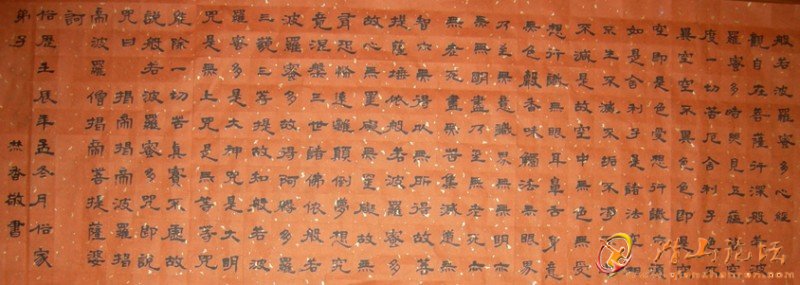 般若波羅蜜多心經
觀自在菩薩行深般若波
羅蜜多時照見五蘊皆空
度一切苦厄舍利子色不
異空空不異色色即是空
空即是色受想行識亦復
如是舍利子是諸法空相
不生不滅不垢不淨不增
不減是故空中無色無受
想行識無眼耳鼻舌身意
無色聲香味觸法無眼界
乃至無意識界無無明亦
無無明盡乃至無老死亦
無老死盡無苦集滅道無
智亦無得以無所得故菩
提薩埵依般若波羅蜜多
故心無罣礙無罣礙故無
有恐怖遠離顛倒夢想究
竟涅槃三世諸佛依般若
波羅蜜多故得阿耨多羅
三藐三菩提故知般若波
羅蜜多是大神咒是大明
咒是無上咒是無等等咒
能除一切苦真實不虛故
說般若波羅蜜多咒即說
咒曰 揭帝揭帝波羅揭
帝波羅僧揭帝菩提薩婆
訶
俗歷壬辰年孟冬月俗家
弟子 焚香敬書
山论坛